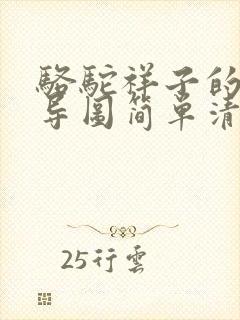 骆驼祥子的
导图简单清
25行雲